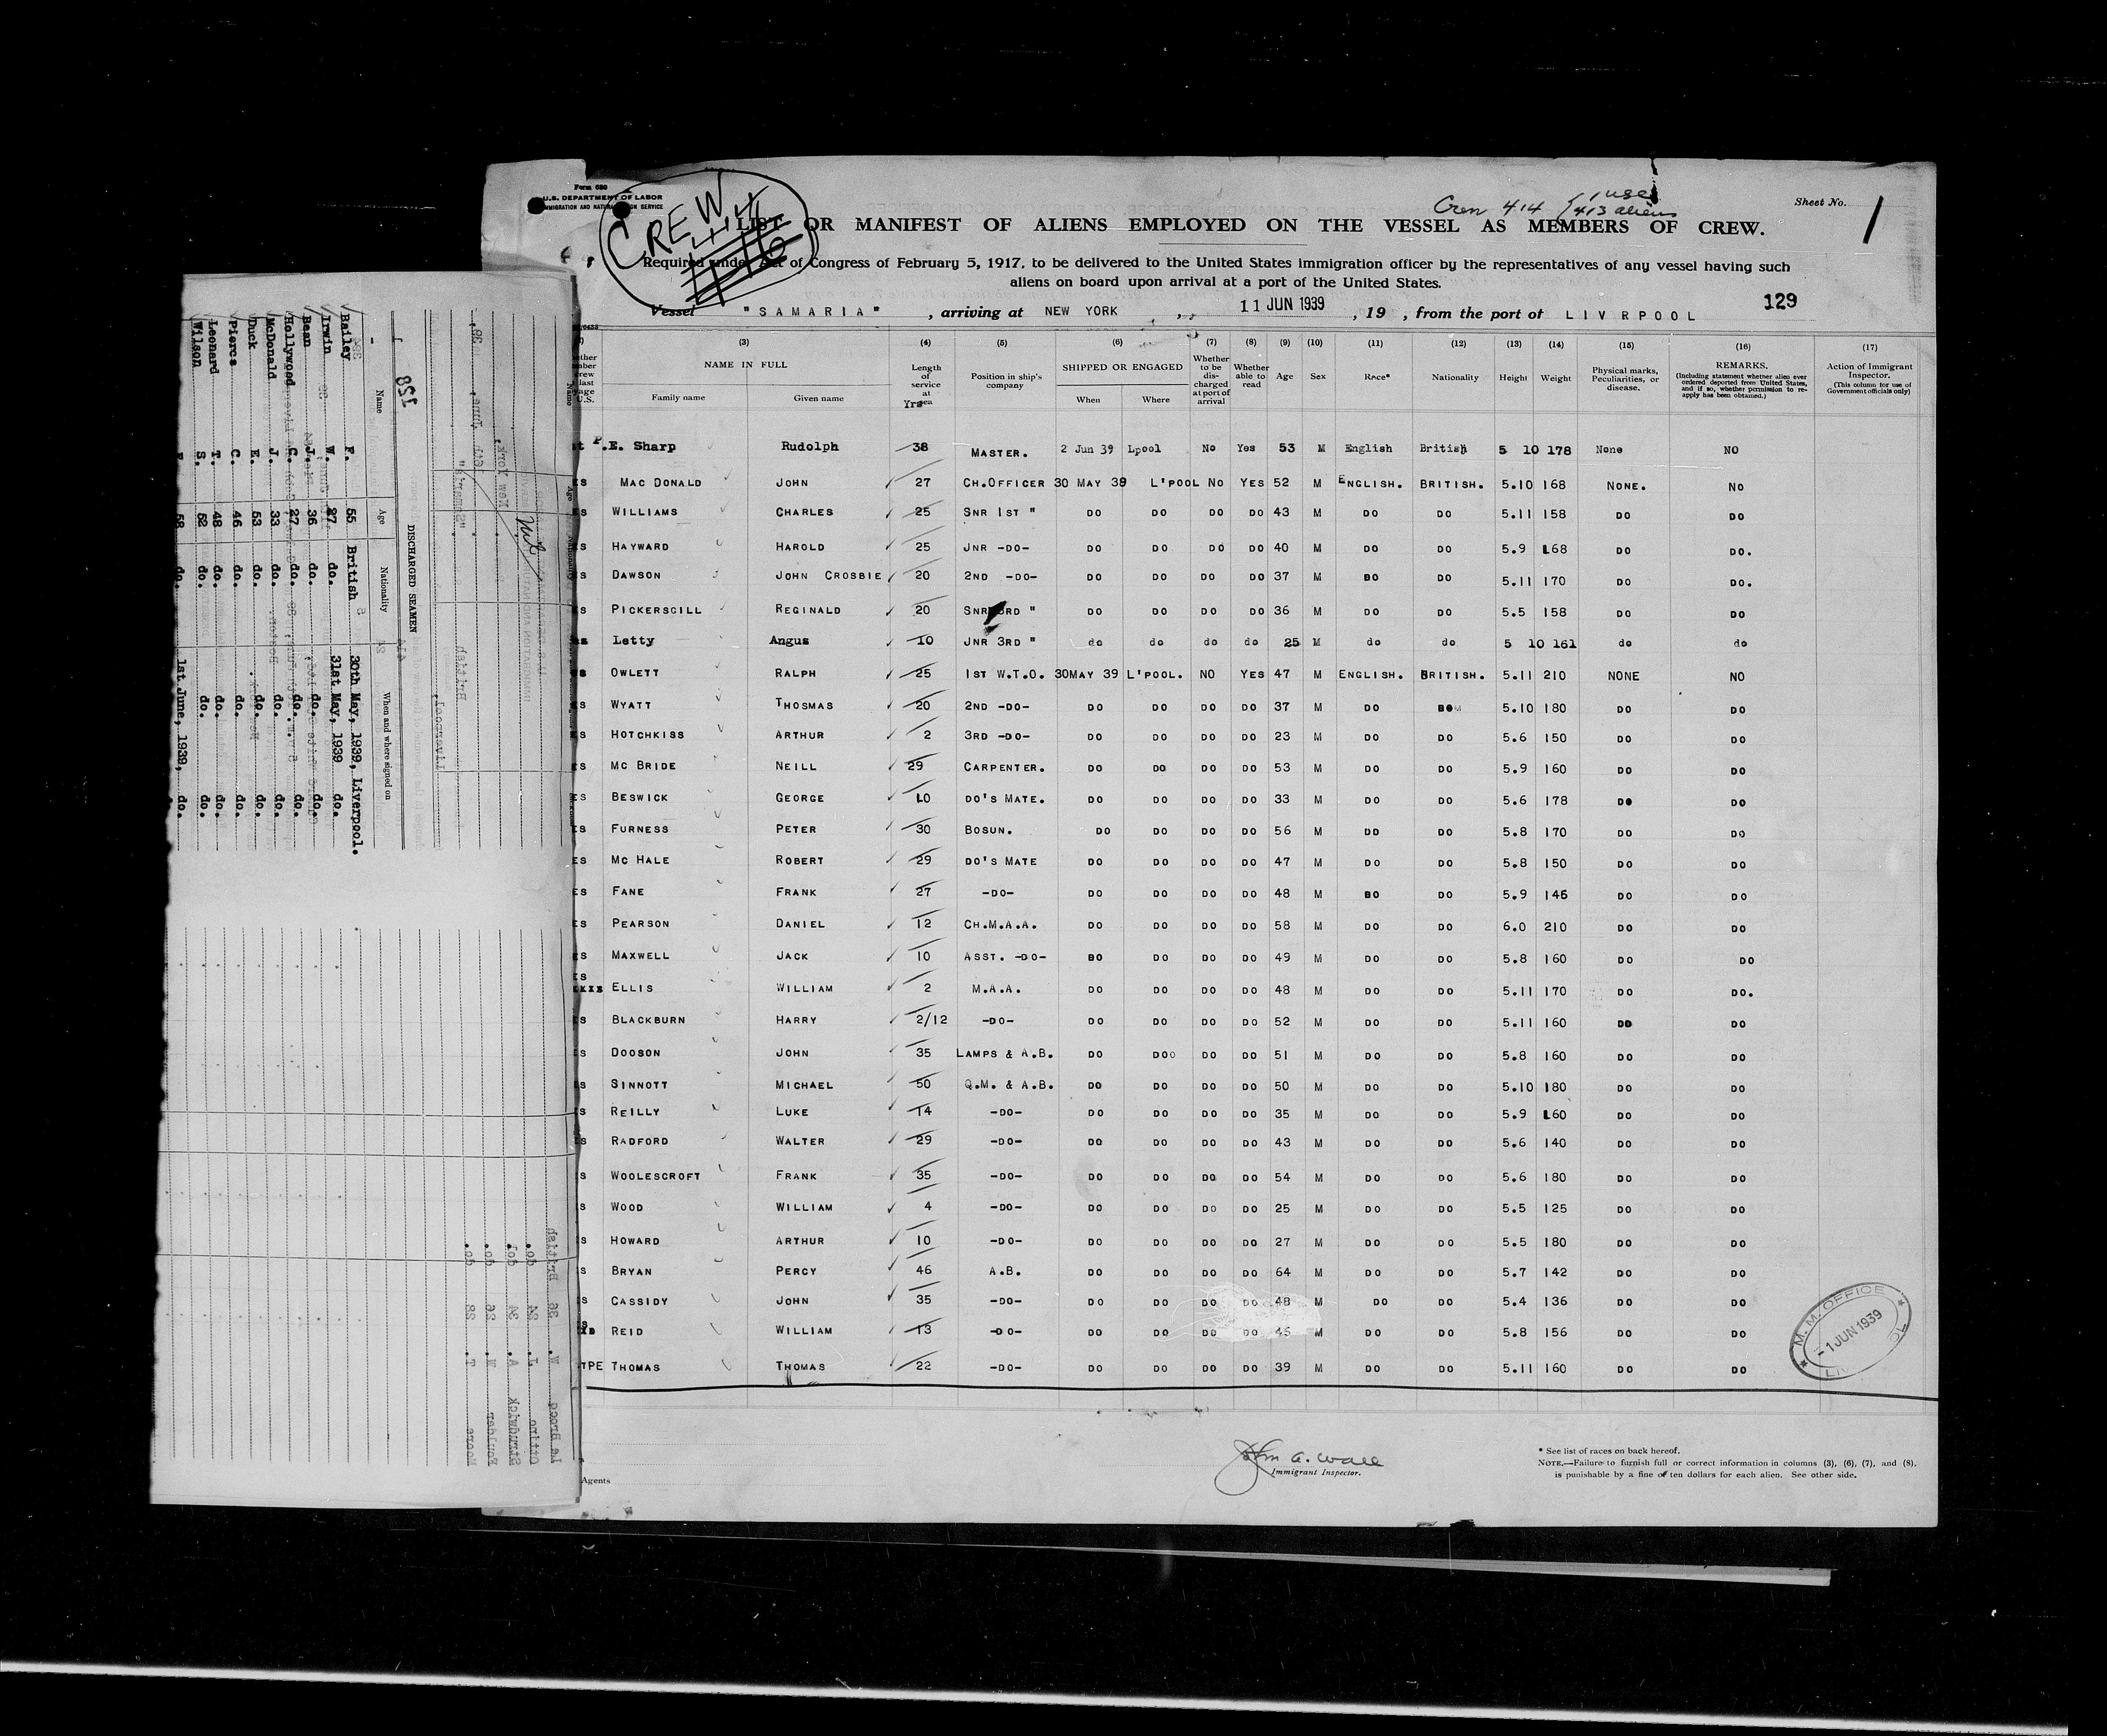 Form 680
U.S. DEPARTMENT OF LABOR
IMMIGRATION AND NATURALIZATION SERVICE
CREW
414
Crew 414 { 1 usc
413 aliens
Sheet No. 1
LIST OR MANIFEST OF ALIENS EMPLOYED ON THE VESSEL AS MEMBERS OF CREW.
Required under Act of Congress of February 5, 1917, to be delivered to the United States immigration officer by the representatives of any vessel having such
aliens on board upon arrival at a port of the United States.
129
Vessel "SAMARIA", arriving at NEW YORK, 11 JUN 1939, 19 , from the port of LIVRPOOL
(3) (4) (5) (6) (7) (8) (9) (10) (11) (12) (13) (14) (15) (16) (17)
NAME IN FULL
Family name Given name
Length of service at sea
Yrs
Position in ship's company
SHIPPED OR ENGAGED
When Where
Whether to be discharged at port of arrival
Whether able to read
Age Sex Race* Nationality Height Weight
Physical marks, Peculiarities, or disease.
REMARKS.
(Including statement whether alien ever ordered deported from United States, and if so, whether permission to reapply has been obtained.)
Action of Immigrant Inspector.
(This column for use of Government officials only)
P.E. Sharp Rudolph 38 MASTER. 2 Jun 39 Lpool No Yes 53 M English British 5 10 178 None NO
MAC DONALD JOHN 27 CH.OFFICER 30 MAY 39 L'POOL NO YES 52 M ENGLISH. BRITISH. 5.10 168 NONE. NO
WILLIAMS CHARLES 25 SNR 1ST " DO DO DO DO 43 M DO DO 5.11 158 DO DO
HAYWARD HAROLD 25 JNR -DO- DO DO DO DO 40 M DO DO 5.9 168 DO DO.
DAWSON JOHN CROSBIE 20 2ND -DO- DO DO DO DO 37 M DO DO 5.11 170 DO DO.
PICKERSCILL REGINALD 20 SNR 3RD " DO DO DO DO 36 M DO DO 5.5 158 DO DO
Letty Angus 10 JNR 3RD " do do do do 25 M do do 5 10 161 do do
OWLETT RALPH 25 1ST W.T.O. 30MAY 39 L'POOL. NO YES 47 M ENGLISH. BRITISH. 5.11 210 NONE NO
WYATT THOSMAS 20 2ND -DO- DO DO DO DO 37 M DO DO 5.10 180 DO DO
HOTCHKISS ARTHUR 2 3RD -DO- DO DO DO DO 23 M DO DO 5.6 150 DO DO
MC BRIDE NEILL 29 CARPENTER. DO DO DO DO 53 M DO DO 5.9 160 DO DO
BESWICK GEORGE 10 DO'S MATE. DO DO DO DO 33 M DO DO 5.6 178 DO DO
FURNESS PETER 30 BOSUN. DO DO DO DO 56 M DO DO 5.8 170 DO DO
MC HALE ROBERT 29 DO'S MATE DO DO DO DO 47 M DO DO 5.8 150 DO DO
FANE FRANK 27 -DO- DO DO DO DO 48 M DO DO 5.9 146 DO DO
PEARSON DANIEL 12 CH.M.A.A. DO DO DO DO 58 M DO DO 6.0 210 DO DO
MAXWELL JACK 10 ASST. -DO- DO DO DO DO 49 M DO DO 5.8 160 DO DO
ELLIS WILLIAM 2 M.A.A. DO DO DO DO 48 M DO DO 5.11 170 DO DO.
BLACKBURN HARRY 2/12 -DO- DO DO DO DO 52 M DO DO 5.11 160 DO DO
DOOSON JOHN 35 LAMPS & A.B. DO DOO DO DO 51 M DO DO 5.8 160 DO DO
SINNOTT MICHAEL 50 Q.M. & A.B. DO DO DO DO 50 M DO DO 5.10 180 DO DO
REILLY LUKE 14 -DO- DO DO DO DO 35 M DO DO 5.9 160 DO DO
RADFORD WALTER 29 -DO- DO DO DO DO 43 M DO DO 5.6 140 DO DO
WOOLESCROFT FRANK 35 -DO- DO DO DO DO 54 M DO DO 5.6 180 DO DO
WOOD WILLIAM 4 -DO- DO DO DO DO 25 M DO DO 5.5 125 DO DO
HOWARD ARTHUR 10 -DO- DO DO DO DO 27 M DO DO 5.5 180 DO DO
BRYAN PERCY 46 A.B. DO DO DO DO 64 M DO DO 5.7 142 DO DO
CASSIDY JOHN 35 -DO- DO DO DO DO 48 M DO DO 5.4 136 DO DO
REID WILLIAM 13 -DO- DO DO DO DO 45 M DO DO 5.8 156 DO DO
THOMAS THOMAS 22 -DO- DO DO DO DO 39 M DO DO 5.11 160 DO DO
M.M. OFFICE
-1 JUN 1939
LIV
Agents
John A. Wall
Immigrant Inspector.
* See list of races on back hereof.
NOTE.—Failure to furnish full or correct information in columns (3), (6), (7), and (8),
is punishable by a fine of ten dollars for each alien. See other side.
128
DISCHARGED SEAMEN
Name Age Nationality When and where signed on
Bailey F. 55 British 30th May, 1939, Liverpool.
Irwin W. 27 do. 31st May, 1939 do.
Bean J. 36 do. do. do.
Hollywood C. 27 do. do. do.
McDonald J. 33 do. do. do.
Duck E. 53 do. do. do.
Pierce C. 46 do. do. do.
Leonard T. 48 do. do. do.
Wilson S. 52 do. do. do.
58 do. 1st June, 1939, do.